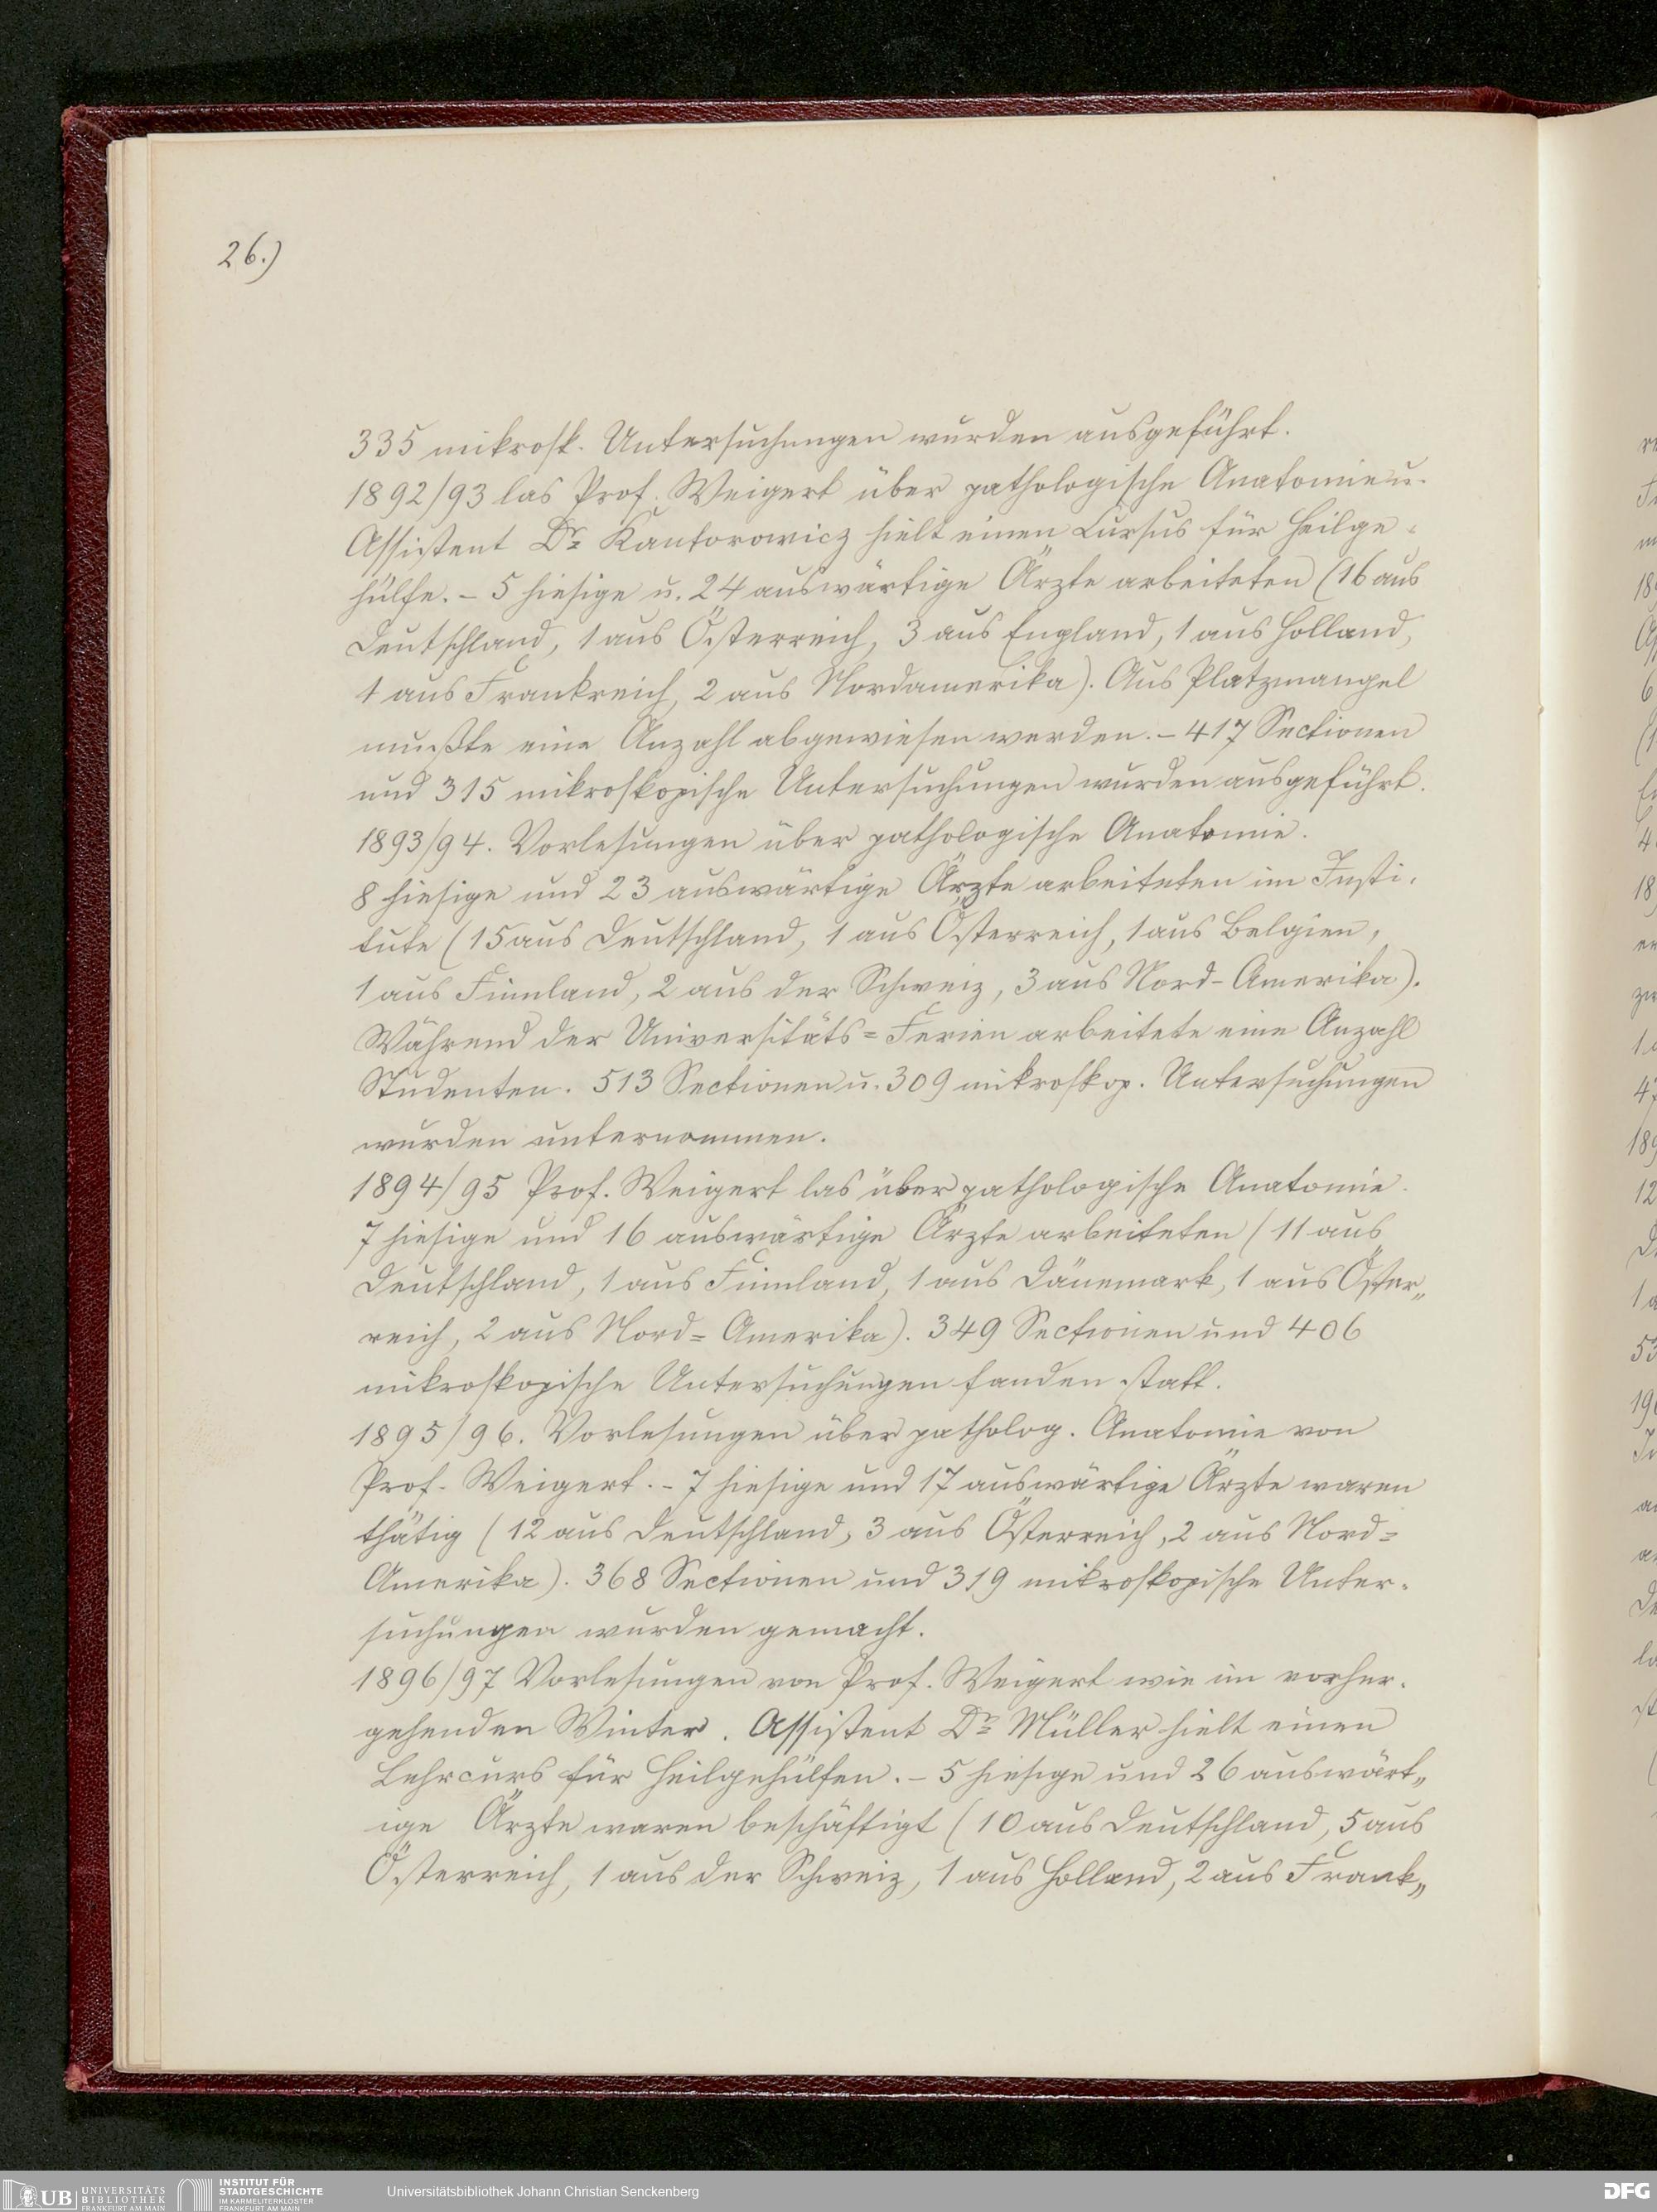 26.)
335 mikrosk. Untersuchungen wurden ausgeführt.
1892/93 las Prof. Weigert über pathologische Anatomie u.
Assistent Dr. Kantorowicz hielt einen Cursus für Heilge-
hülfe. – 5 hiesige u. 24 auswärtige Ärzte arbeiteten (16 aus
Deutschland, 1 aus Österreich, 3 aus England, 1 aus Holland,
1 aus Frankreich, 2 aus Nordamerika). Aus Platzmangel
mußte eine Anzahl abgewiesen werden. – 417 Sectionen
und 315 mikroskopische Untersuchungen wurden ausgeführt.
1893/94. Vorlesungen über pathologische Anatomie.
8 hiesige und 23 auswärtige Ärzte arbeiteten im Insti-
tute (15 aus Deutschland, 1 aus Österreich, 1 aus Belgien,
1 aus Finnland, 2 aus der Schweiz, 3 aus Nord-Amerika).
Während der Universitäts=Ferien arbeitete eine Anzahl
Studenten. 513 Sectionen u. 309 mikroskop. Untersuchungen
wurden unternommen.
1894/95 Prof. Weigert las über pathologische Anatomie.
7 hiesige und 16 auswärtige Ärzte arbeiteten (11 aus
Deutschland, 1 aus Finnland, 1 aus Dänemark, 1 aus Öster„
reich, 2 aus Nord=Amerika). 349 Sectionen und 406
mikroskopische Untersuchungen fanden statt.
1895/96. Vorlesungen über patholog. Anatomie von
Prof. Weigert. – 7 hiesige und 17 auswärtige Ärzte waren
thätig (12 aus Deutschland, 3 aus Österreich, 2 aus Nord=
Amerika). 368 Sectionen und 319 mikroskopische Unter-
suchungen wurden gemacht.
1896/97 Vorlesungen von Prof. Weigert wie im vorher-
gehenden Winter. Assistent Dr. Müller hielt einen
Lehrcurs für Heilgehülfen. – 5 hiesige und 26 auswärt„
ige Ärzte waren beschäftigt (10 aus Deutschland, 5 aus
Österreich, 1 aus der Schweiz, 1 aus Holland, 2 aus Frank„
UB UNIVERSITÄTS
BIBLIOTHEK
FRANKFURT AM MAIN
INSTITUT FÜR
STADTGESCHICHTE
IM KARMELITERKLOSTER
FRANKFURT AM MAIN
Universitätsbibliothek Johann Christian Senckenberg
DFG